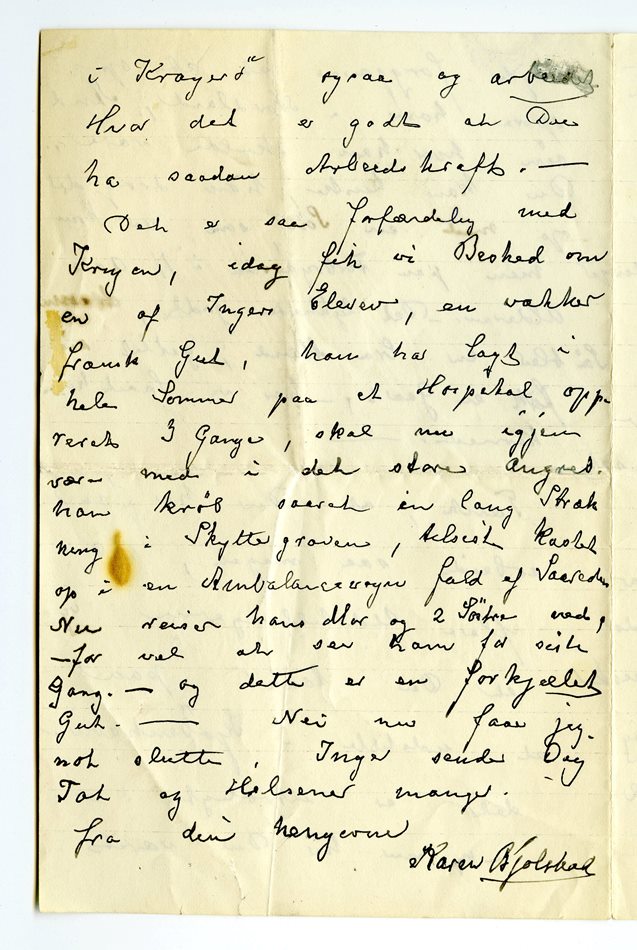 i Kragerö" ogsaa og arbeidet
Hvor det er godt at Du
ha saadan Arbeidskraft. —
Det er saa forfærdelig med
Krigen, idag fik vi Besked om
en af Ingers Elever, en vakker
fransk Gut, han har lagt i
hele Sommer paa et Hospital ope-
rerets 3 Gange, skal nu igjen
være med i det store angreb.
han krøb saaret en lang Stræk
ning i Skyttegraven, tilsist kastet
op i en Ambulancevogn fuld af Saarede
Nu reiser hans Mor og 2 Söstre ned,
— for vel at se ham for siste
Gang. — og dette er en forkjælet
Gut. — Nei nu faar jeg
nok slutte, Inger sender Dig
Tak og Hilsener mange.
fra din hengivne
Karen Bjolstad